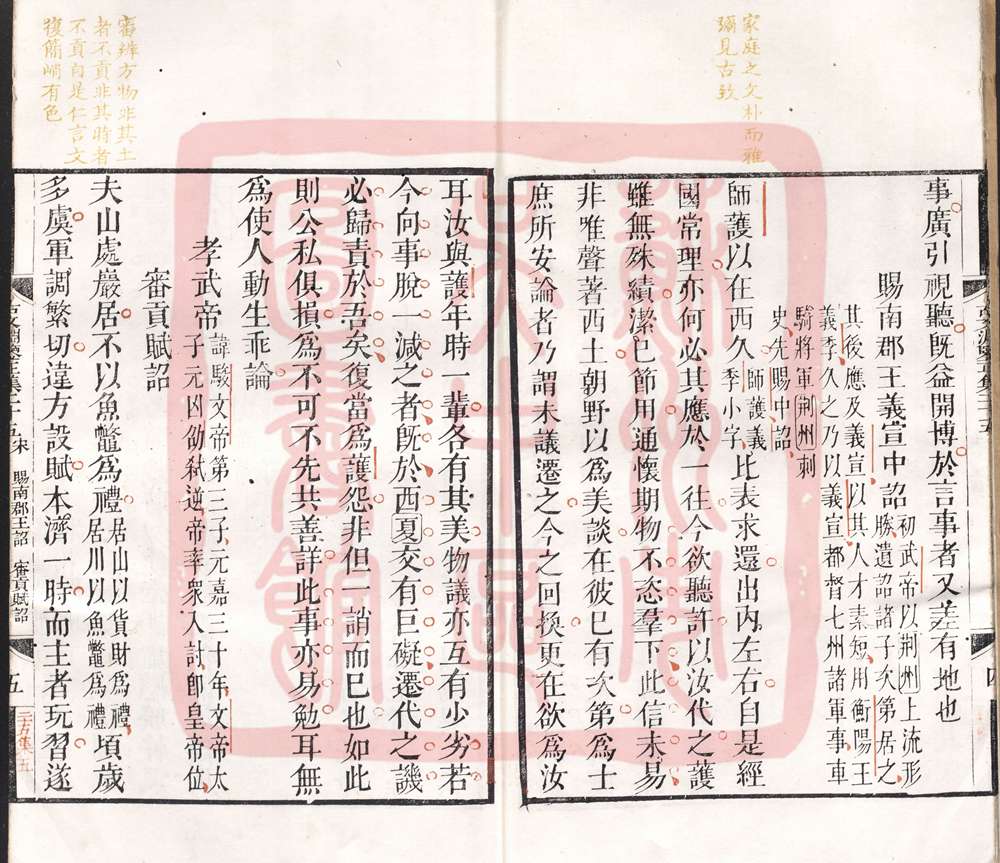 家庭之文朴而雅
彌見古致
事廣引視聽既益開博於言事者又差有地也
賜南郡王義宣中詔
初武帝以荆州上流形
勝遺詔諸子次第居之
其後應及義宣以其人才素短用衡陽王
義季久之乃以義宣都督七州諸軍事車
騎將軍荆州刺
史先賜中詔
師護以在西久
師護義
季小字
比表求還出內左右自是經
國常理亦何必其應於一往今欲聽許以汝代之護
雖無殊績潔已節用通懷期物不恣羣下此信未易
非唯聲著西土朝野以爲美談在彼已有次第爲士
庶所安論者乃謂未議遷之今之回換更在欲爲汝
耳汝與護年時一輩各有其美物議亦互有少劣若
今向事脫一減之者既於西夏交有巨礙遷代之譏
必歸責於吾矣復當爲護怨非但一誚而已也如此
則公私俱損爲不可不先共善詳此事亦易勉耳無
爲使人動生乖論
孝武帝
諱駿文帝第三子元嘉三十年文帝太
子元凶劭弑逆帝率衆入討卽皇帝位
審貢賦詔
夫山處巖居不以魚鼈爲禮
居山以貨財爲禮
居川以魚鼈爲禮
頃歲
多虞軍調繁切違方設賦本濟一時而主者玩習遂
審辨方物非其土
者不貢非其時者
不貢自是仁言文
復簡峭有色
宋
賜南郡王詔
審貢賦詔
五